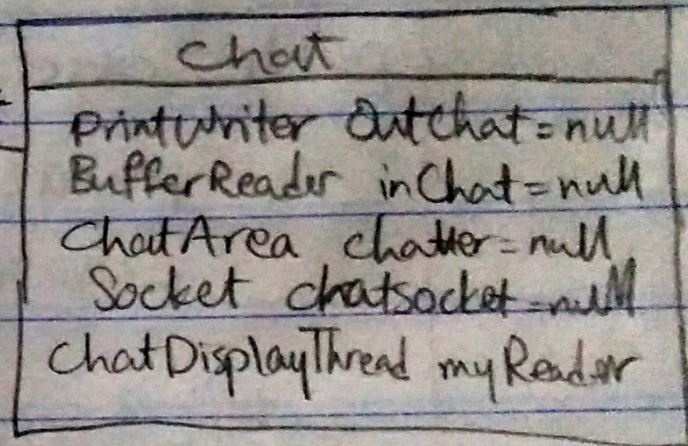 Chat
PrintWriter OutChat = null
BufferReader inChat = null
ChatArea chatter = null
Socket chatsocket = null
ChatDisplayThread myReader